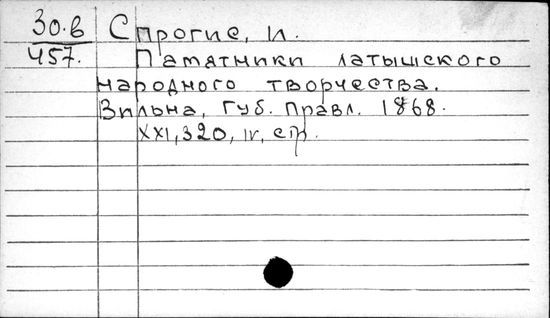 30.в Спрогис, И.
457. Памятники латышского
народного творчества.
Вильна, Губ. Правл. 1868.
XXI, 320, IV, стр.